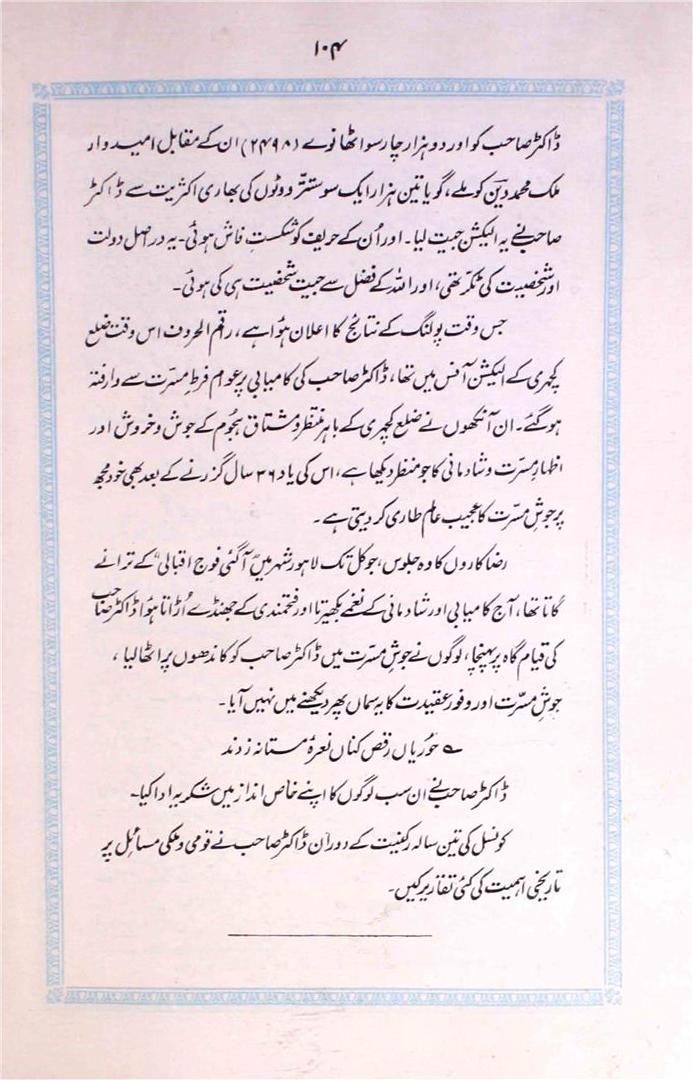 ۱۰۴
ڈاکٹر صاحب کو اور دو ہزار چار سو اٹھانوے (۲۴۹۸) ان کے مقابل امیدوار
ملک محمد دین کو ملے، گویا تین ہزار ایک سو ستتر ووٹوں کی بھاری اکثریت سے ڈاکٹر
صاحب نے یہ الیکشن جیت لیا۔ اور اُن کے حریف کو شکستِ فاش ہوئی۔ یہ دراصل دولت
اور شخصیت کی ٹکر تھی، اور اللہ کے فضل سے جیت شخصیت ہی کی ہوئی۔
جس وقت پولنگ کے نتائج کا اعلان ہوا ہے، رقم الحروف اس وقت ضلع
کچہری کے الیکشن آفس میں تھا، ڈاکٹر صاحب کی کامیابی پر عوام فرطِ مسرّت سے وارفتہ
ہو گئے۔ ان آنکھوں نے ضلع کچہری کے باہر منتظر و مشتاق ہجُوم کے جوش و خروش اور
اظہارِ مسرّت و شادمانی کا جو منظر دیکھا ہے، اس کی یاد ۳۶ سال گزرنے کے بعد بھی خود مجھ
پر جوشِ مسرّت کا عجیب عالم طاری کر دیتی ہے۔
رضا کاروں کا وہ جلوس، جو کل تک لاہور شہر میں "آ گئی فوجِ اقبالی" کے ترانے
گاتا تھا، آج کامیابی اور شادمانی کے نغمے بکھیرتا اور فتحمندی کے جھنڈے اُڑاتا ہوا ڈاکٹر صاحب
کی قیام گاہ پر پہنچا، لوگوں نے جوشِ مسرّت میں ڈاکٹر صاحب کو کاندھوں پر اٹھا لیا،
جوشِ مسرّت اور وفورِ عقیدت کا یہ سماں پھر دیکھنے میں نہیں آیا۔
؎ حوُریاں رقص کناں نعرۂ مستانہ زدند
ڈاکٹر صاحب نے ان سب لوگوں کا اپنے خاص انداز میں شکریہ ادا کیا۔
کونسل کی تین سالہ رکنیت کے دوران ڈاکٹر صاحب نے قومی و ملکی مسائل پر
تاریخی اہمیت کی کئی تقاریر کیں۔